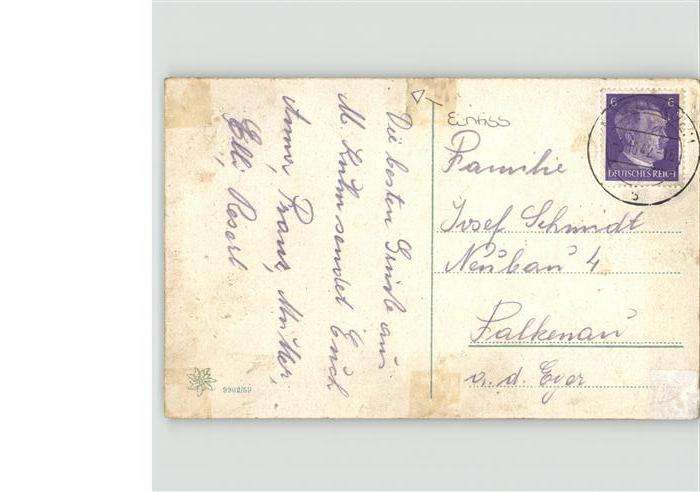 Die besten Grüße aus
M. Kuhn sendet Euch
Anna, Franz, Mutter,
Elli, Reserl
Einriss
Familie
Josef Schmidt
Neubau 4
Falkenau
a. d. Eger
6 6
DEUTSCHES REICH
9902/59